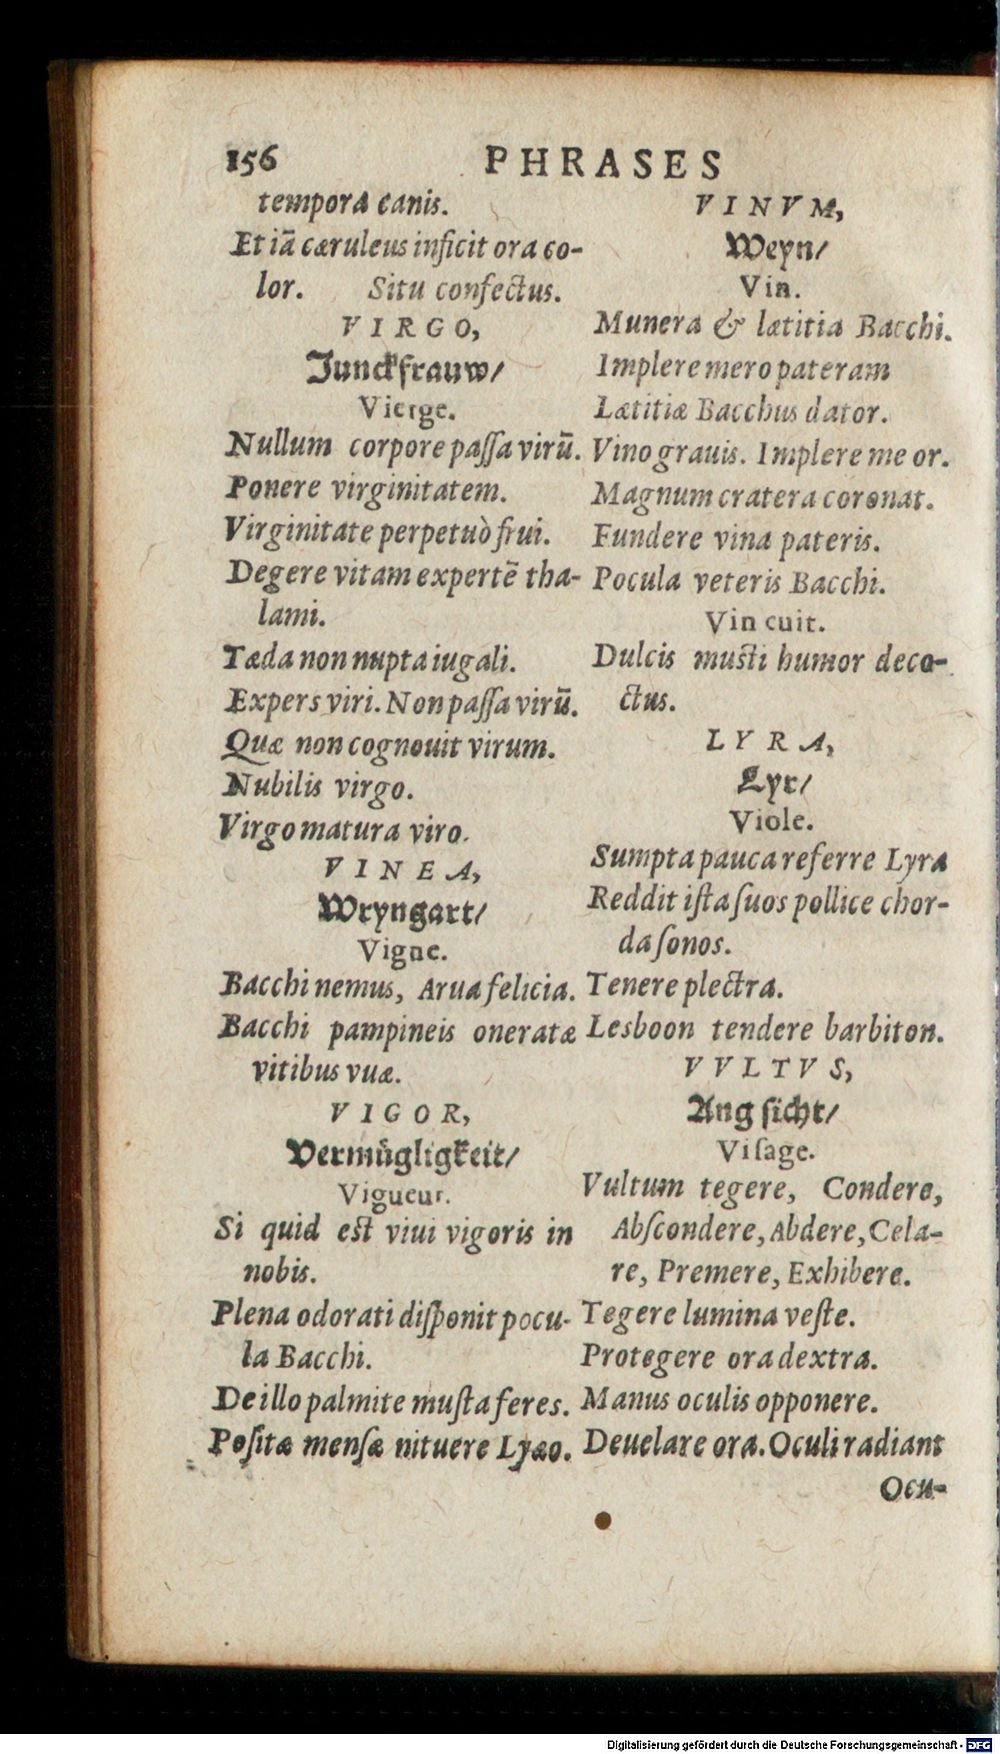 156 PHRASES
tempora canis.
Et iā cæruleus inficit ora co-
lor. Situ confectus.
VIRGO,
Junckfrauw/
Vierge.
Nullum corpore paſſa virū.
Ponere virginitatem.
Virginitate perpetuò frui.
Degere vitam expertē tha-
lami.
Tæda non nupta iugali.
Expers viri. Non paſſa virū.
Quæ non cognouit virum.
Nubilis virgo.
Virgo matura viro.
VINEA,
Weyngart/
Vigne.
Bacchi nemus, Arua felicia.
Bacchi pampineis oneratæ
vitibus vuæ.
VIGOR,
Vermügligkeit/
Vigueur.
Si quid est viui vigoris in
nobis.
Plena odorati diſponit pocu-
la Bacchi.
De illo palmite muſta feres.
Poſitæ menſæ nituere Lyæo.
VINVM,
Weyn/
Vin.
Munera & lætitia Bacchi.
Implere mero pateram
Lætitiæ Bacchus dator.
Vino grauis. Implere me or.
Magnum cratera coronat.
Fundere vina pateris.
Pocula veteris Bacchi.
Vin cuit.
Dulcis musti humor deco-
ctus.
LYRA,
Lyr/
Viole.
Sumpta pauca referre Lyra
Reddit iſta ſuos pollice chor-
da ſonos.
Tenere plectra.
Lesboon tendere barbiton.
VVLTVS,
Ang ſicht/
Viſage.
Vultum tegere, Condere,
Abſcondere, Abdere, Cela-
re, Premere, Exhibere.
Tegere lumina veſte.
Protegere ora dextra.
Manus oculis opponere.
Deuelare ora. Oculi radiant
Ocu-
Digitalisierung gefördert durch die Deutsche Forschungsgemeinschaft - DFG